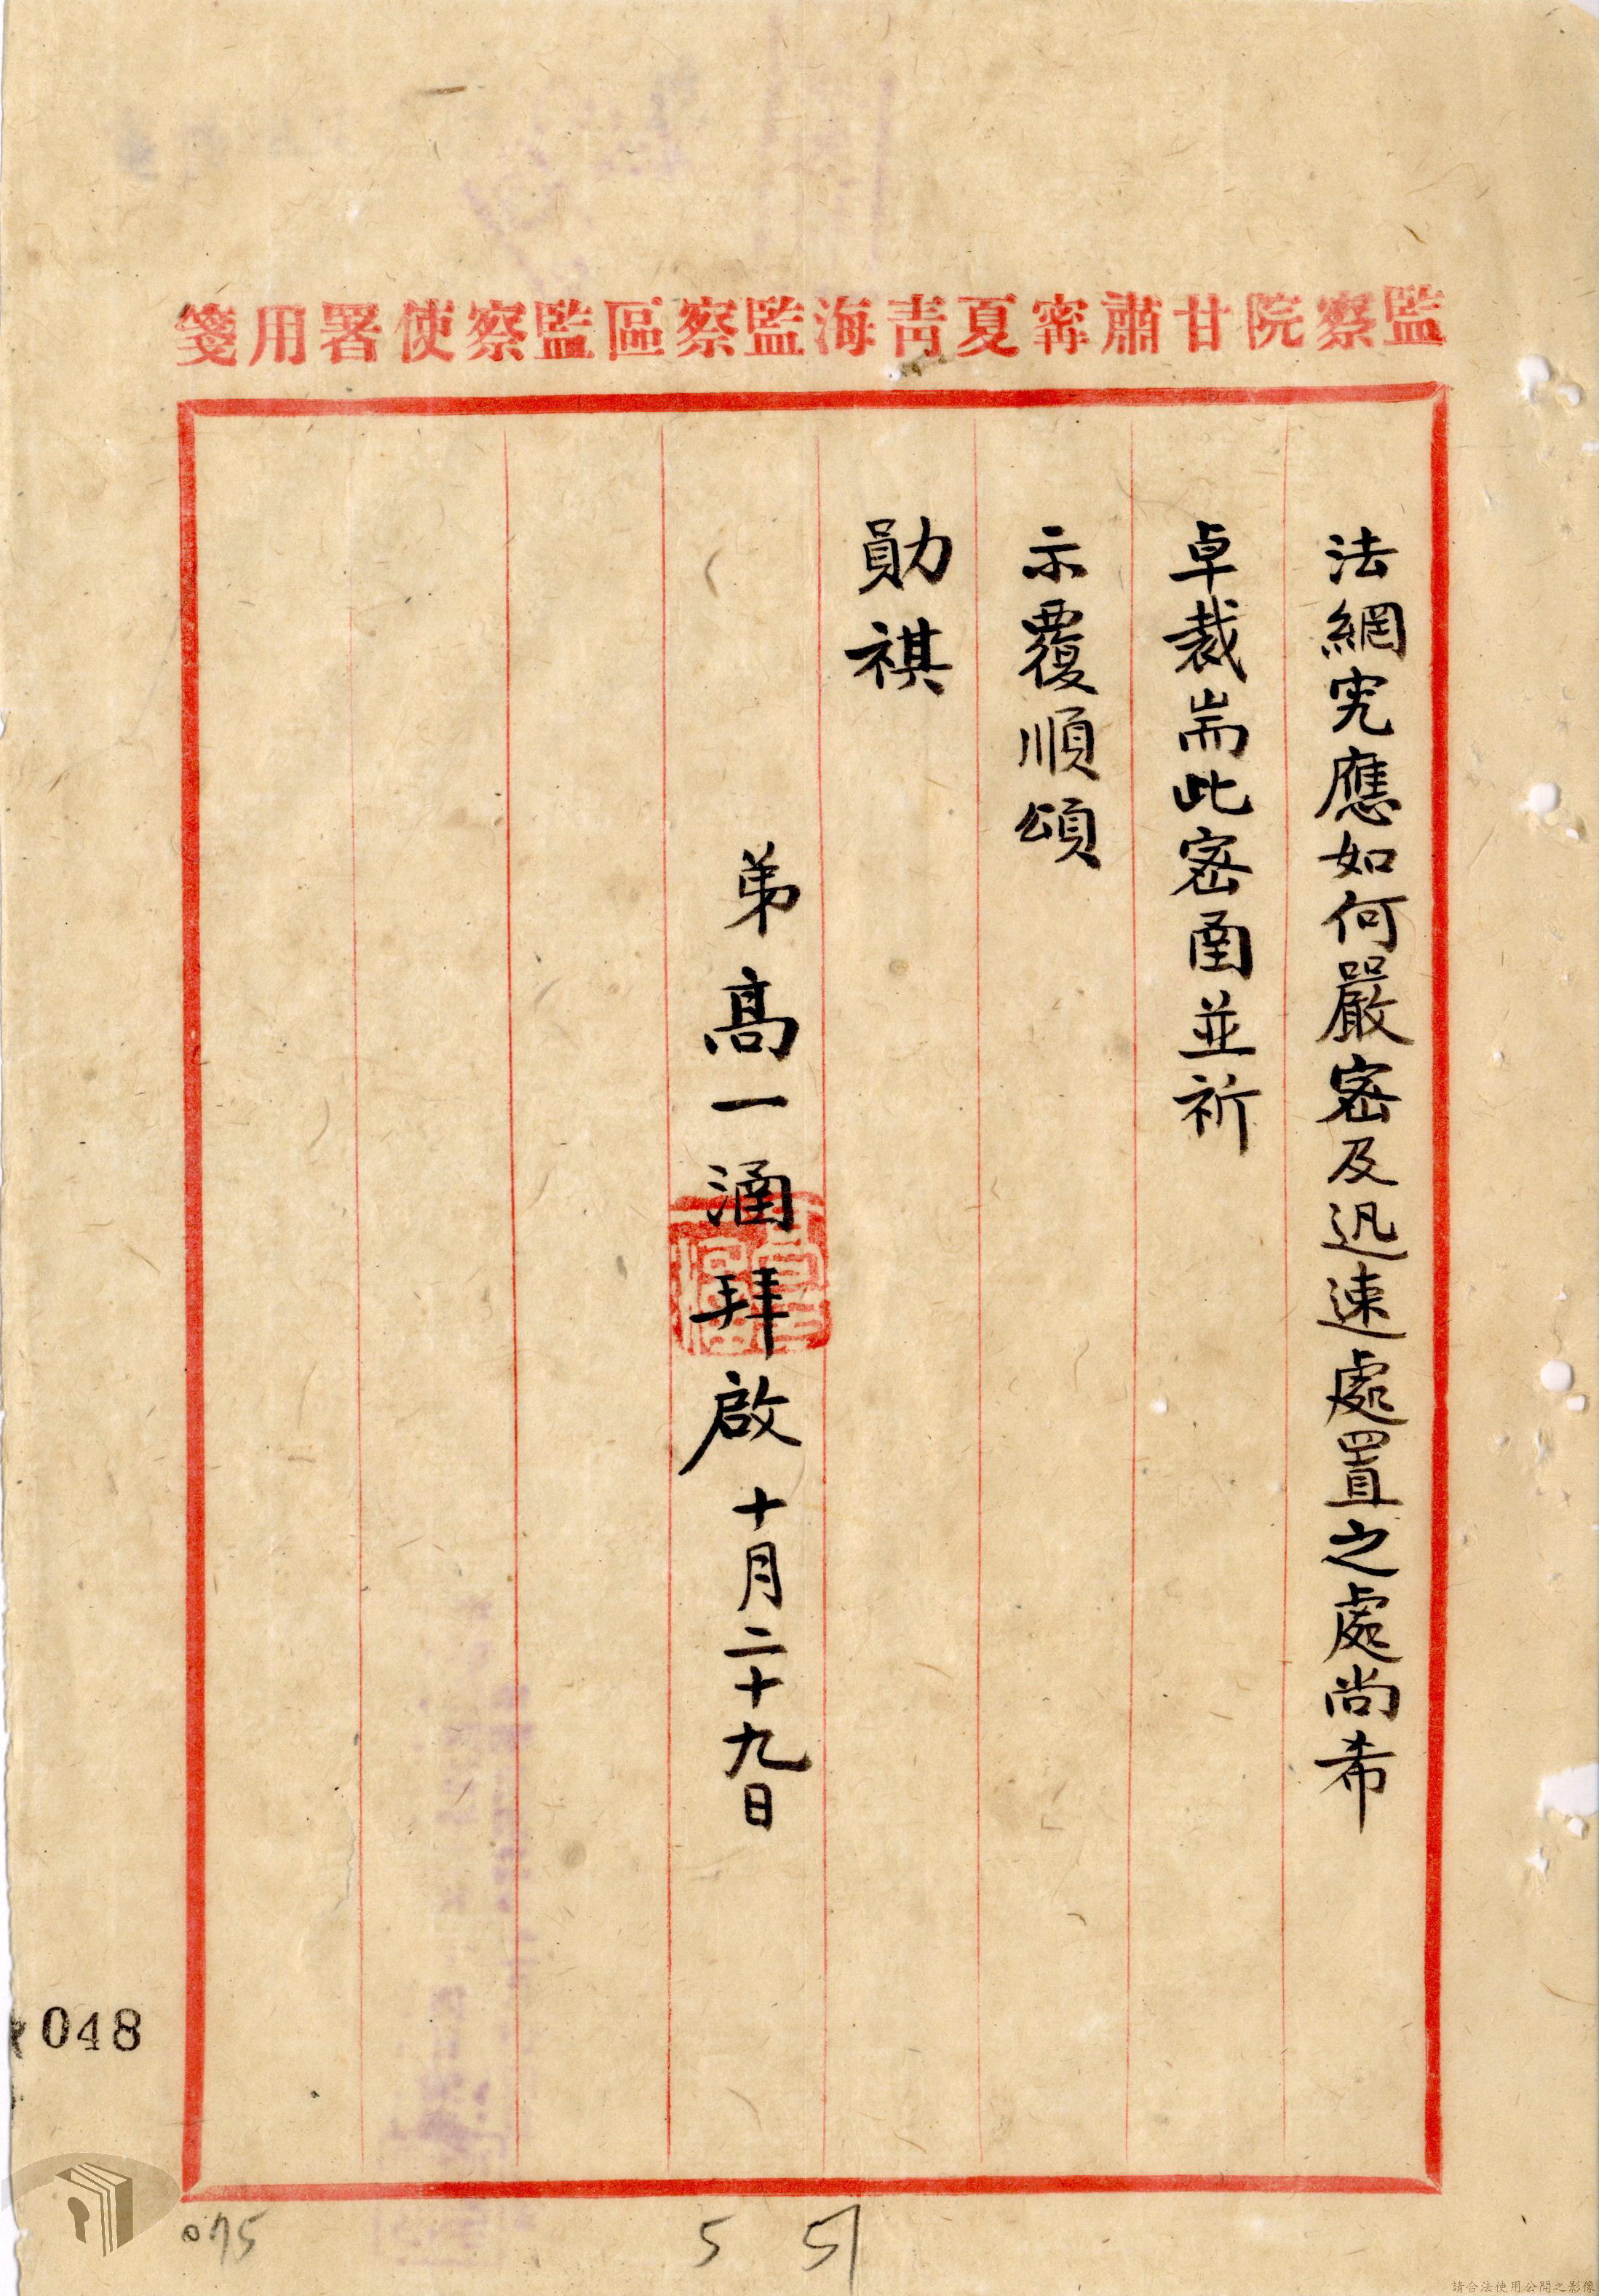 監察院甘肅寧夏青海監察區監察使署用箋
法網究應如何嚴密及迅速處置之處尚希
卓裁耑此密函並祈
示覆順頌
勛祺
弟高一涵拜啟十月二十九日
048
075
5 51
請合法使用公開之影像